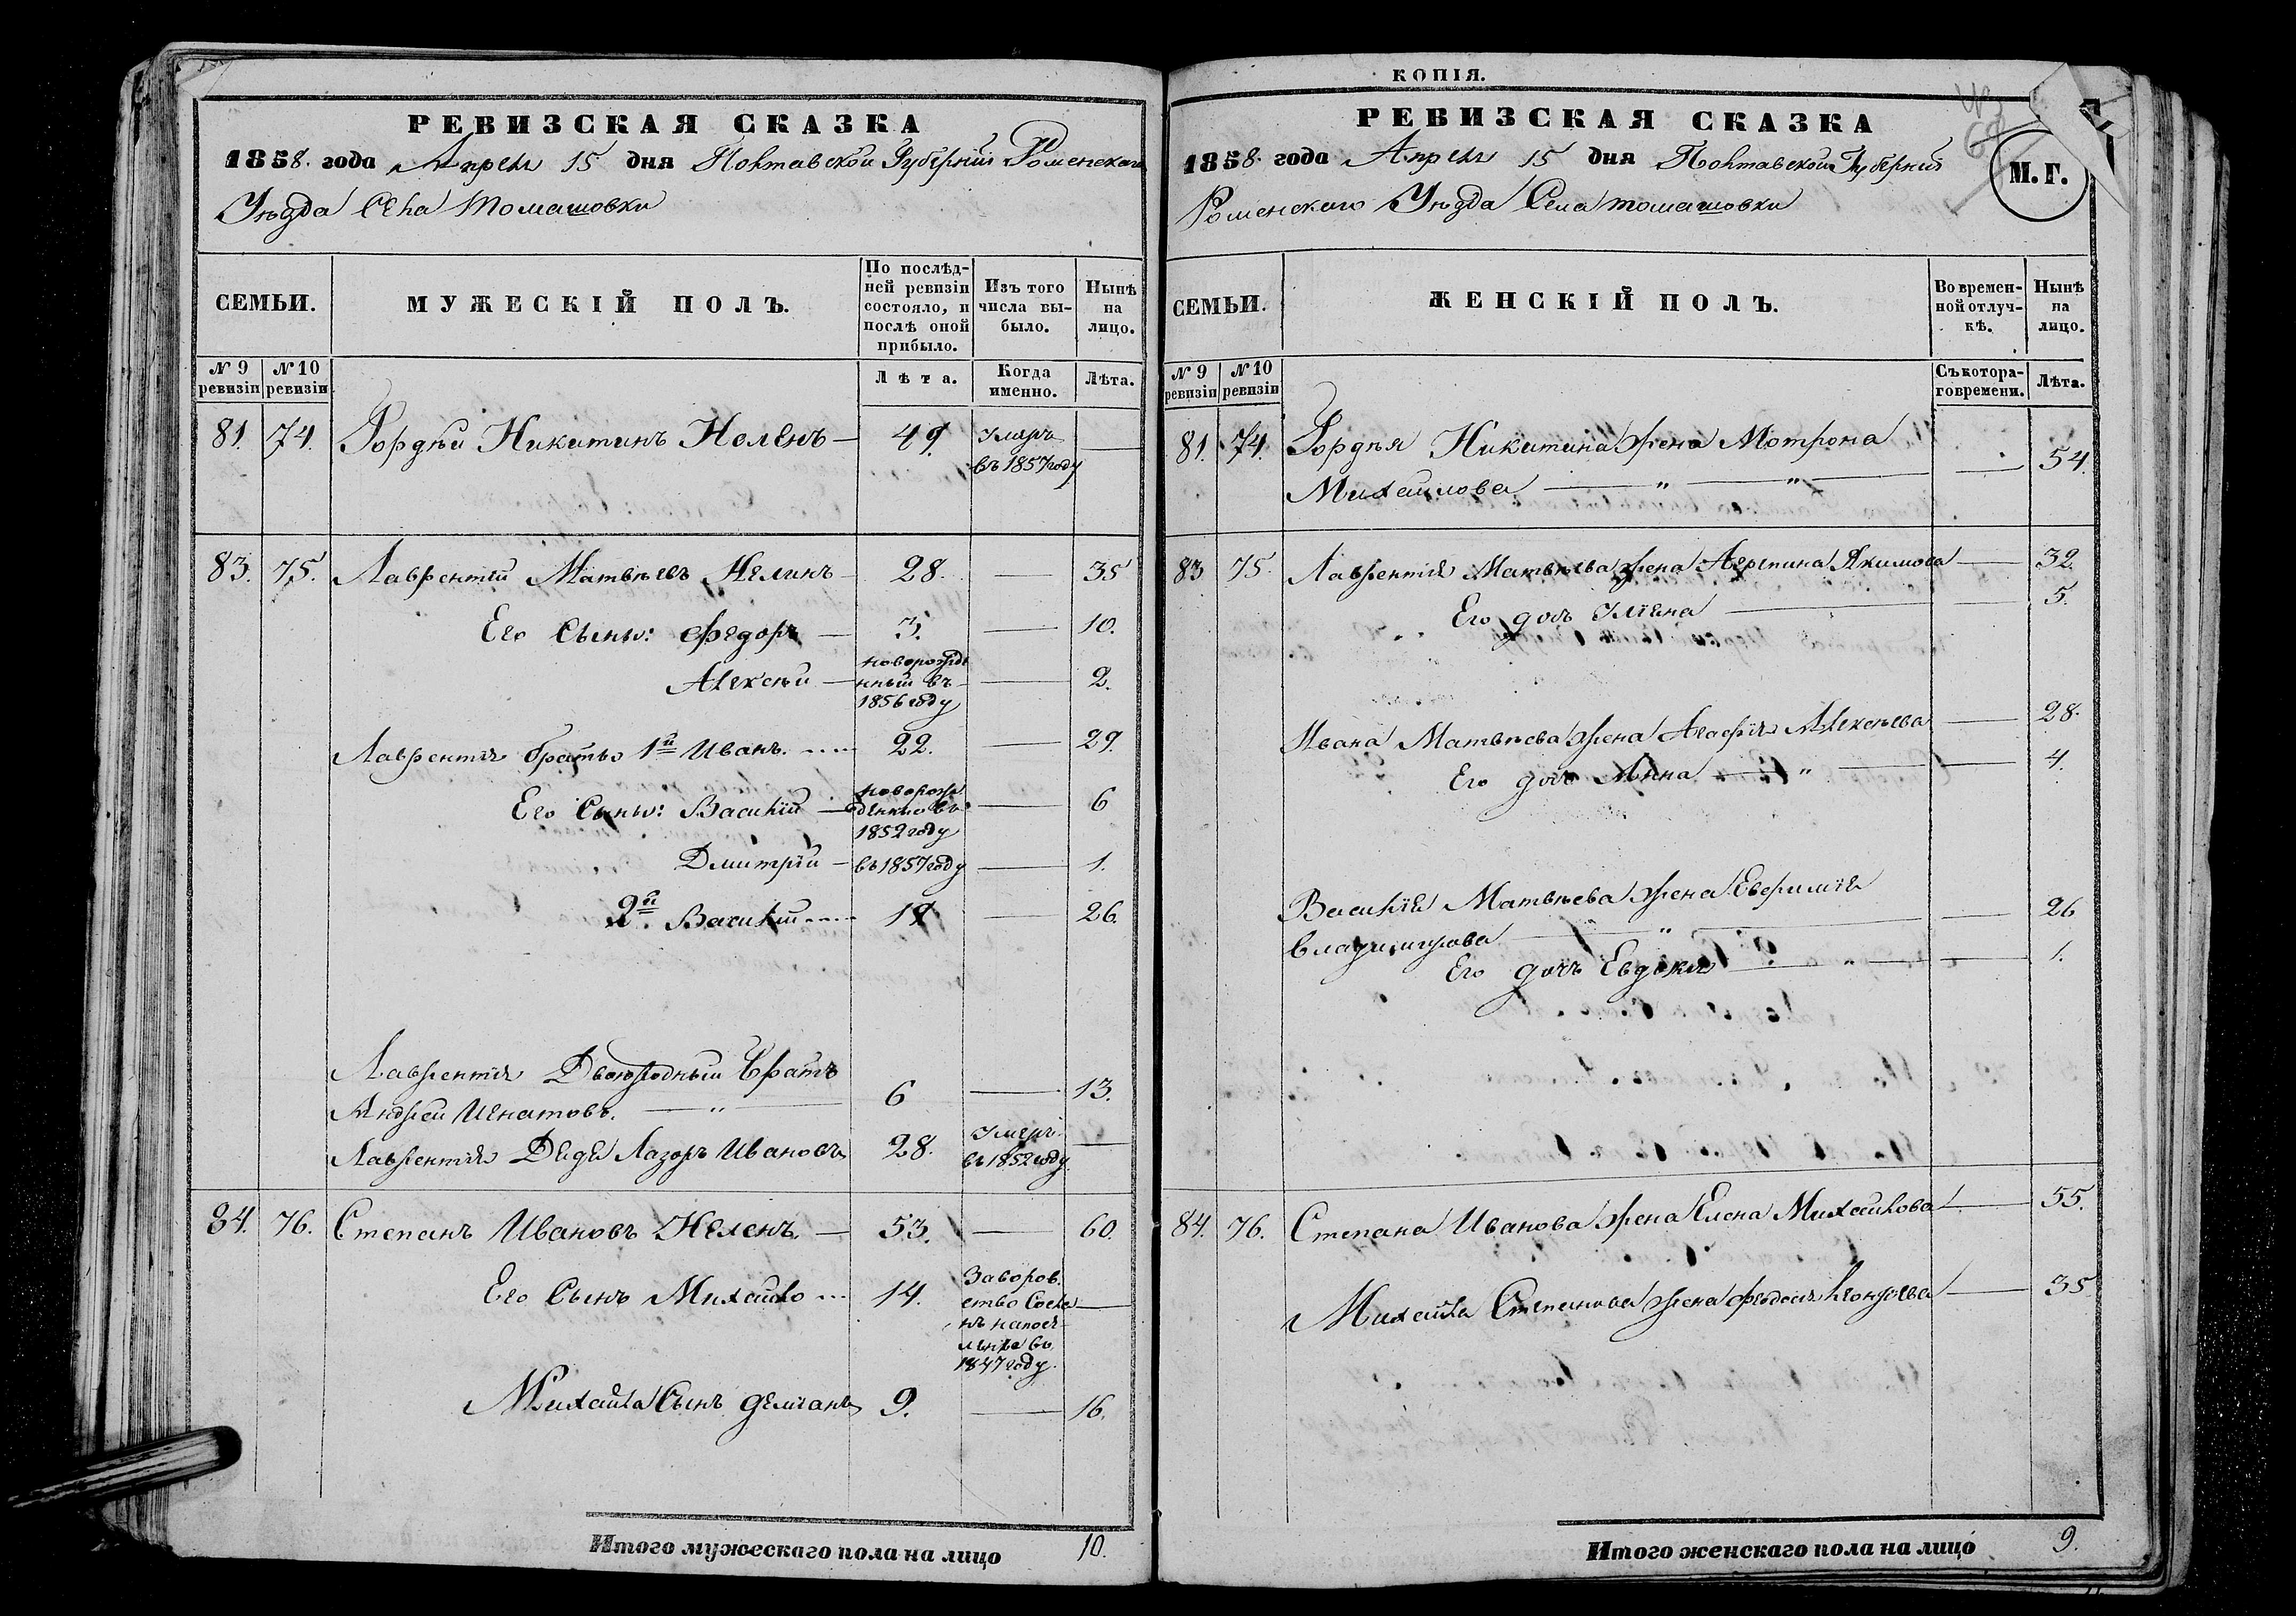 РЕВИЗСКАЯ СКАЗКА
1858. года Апреля 15 дня Полтавской Губерніи Роменскаго
Уѣзда Села Томашовки
СЕМЬИ.
МУЖЕСКІЙ ПОЛЪ.
По послѣд-
ней ревизіи
состояло, и
послѣ оной
прибыло.
Изъ того
числа вы-
было.
Нынѣ
на
лицо.
№ 9
ревизіи
№ 10
ревизіи
Лѣта.
Когда
именно.
Лѣта.
81. 74. Гордѣй Никитинъ Неленъ — 49. Умеръ —
въ 1857 году
83. 75. Лаврентій Матвѣевъ Нелинъ 28. — 35
Его Сыны: Федоръ — 3. — 10.
Алексѣй — новорожде
нный въ — 2.
1856 году
Лаврентія братья 1й Иванъ. 22. — 29.
Его Сыны: Василій — новорож
денные въ — 6
1852 году
Дмитрій — въ 1857 году — 1.
2й Василій 19 — 26.
Лаврентія Двоюродный братъ
Андрей Игнатовъ. — " — 6 — 13.
Лаврентія Дядя Лазоръ Ивановъ 28. Умеръ —
въ 1852 году
84. 76. Степанъ Ивановъ Неленъ. — 53. — 60.
Его Сынъ Михайло 14. Заворов.
ство Сосла —
нъ напосе
леніе въ
1847 году.
Михайла Сынъ Демианъ 9. — 16.
Итого мужескаго пола на лицо 10.
КОПІЯ.
РЕВИЗСКАЯ СКАЗКА
1858. года Апреля 15 дня Полтавской Губерніи
Роменскаго Уѣзда Села томашовки
М. Г.
СЕМЬИ.
ЖЕНСКІЙ ПОЛЪ.
Во времен-
ной отлуч-
кѣ.
Нынѣ
на
лицо.
№ 9
ревизіи
№ 10
ревизіи
Съ котора-
го времени.
Лѣта.
81. 74. Гордѣя Никитина жена Мотрона
Михайлова — " — " — 54.
83 75. Лаврентія Матвѣева жена Агрепина Якимова — 32.
Его дочь Уліена — 5.
Ивана Матвѣева жена Агафія Алексѣева — 28.
Его дочь Анна — " — 4.
Василія Матвѣева жена Евфимія
Владимирова — " — 26
Его дочь Евдокія — " — 1.
84. 76. Степана Иванова жена Елена Михайлова — 55.
Михайла Степанова жена Федосія Леонтьева — 35
Итого женскаго пола на лицо 9.